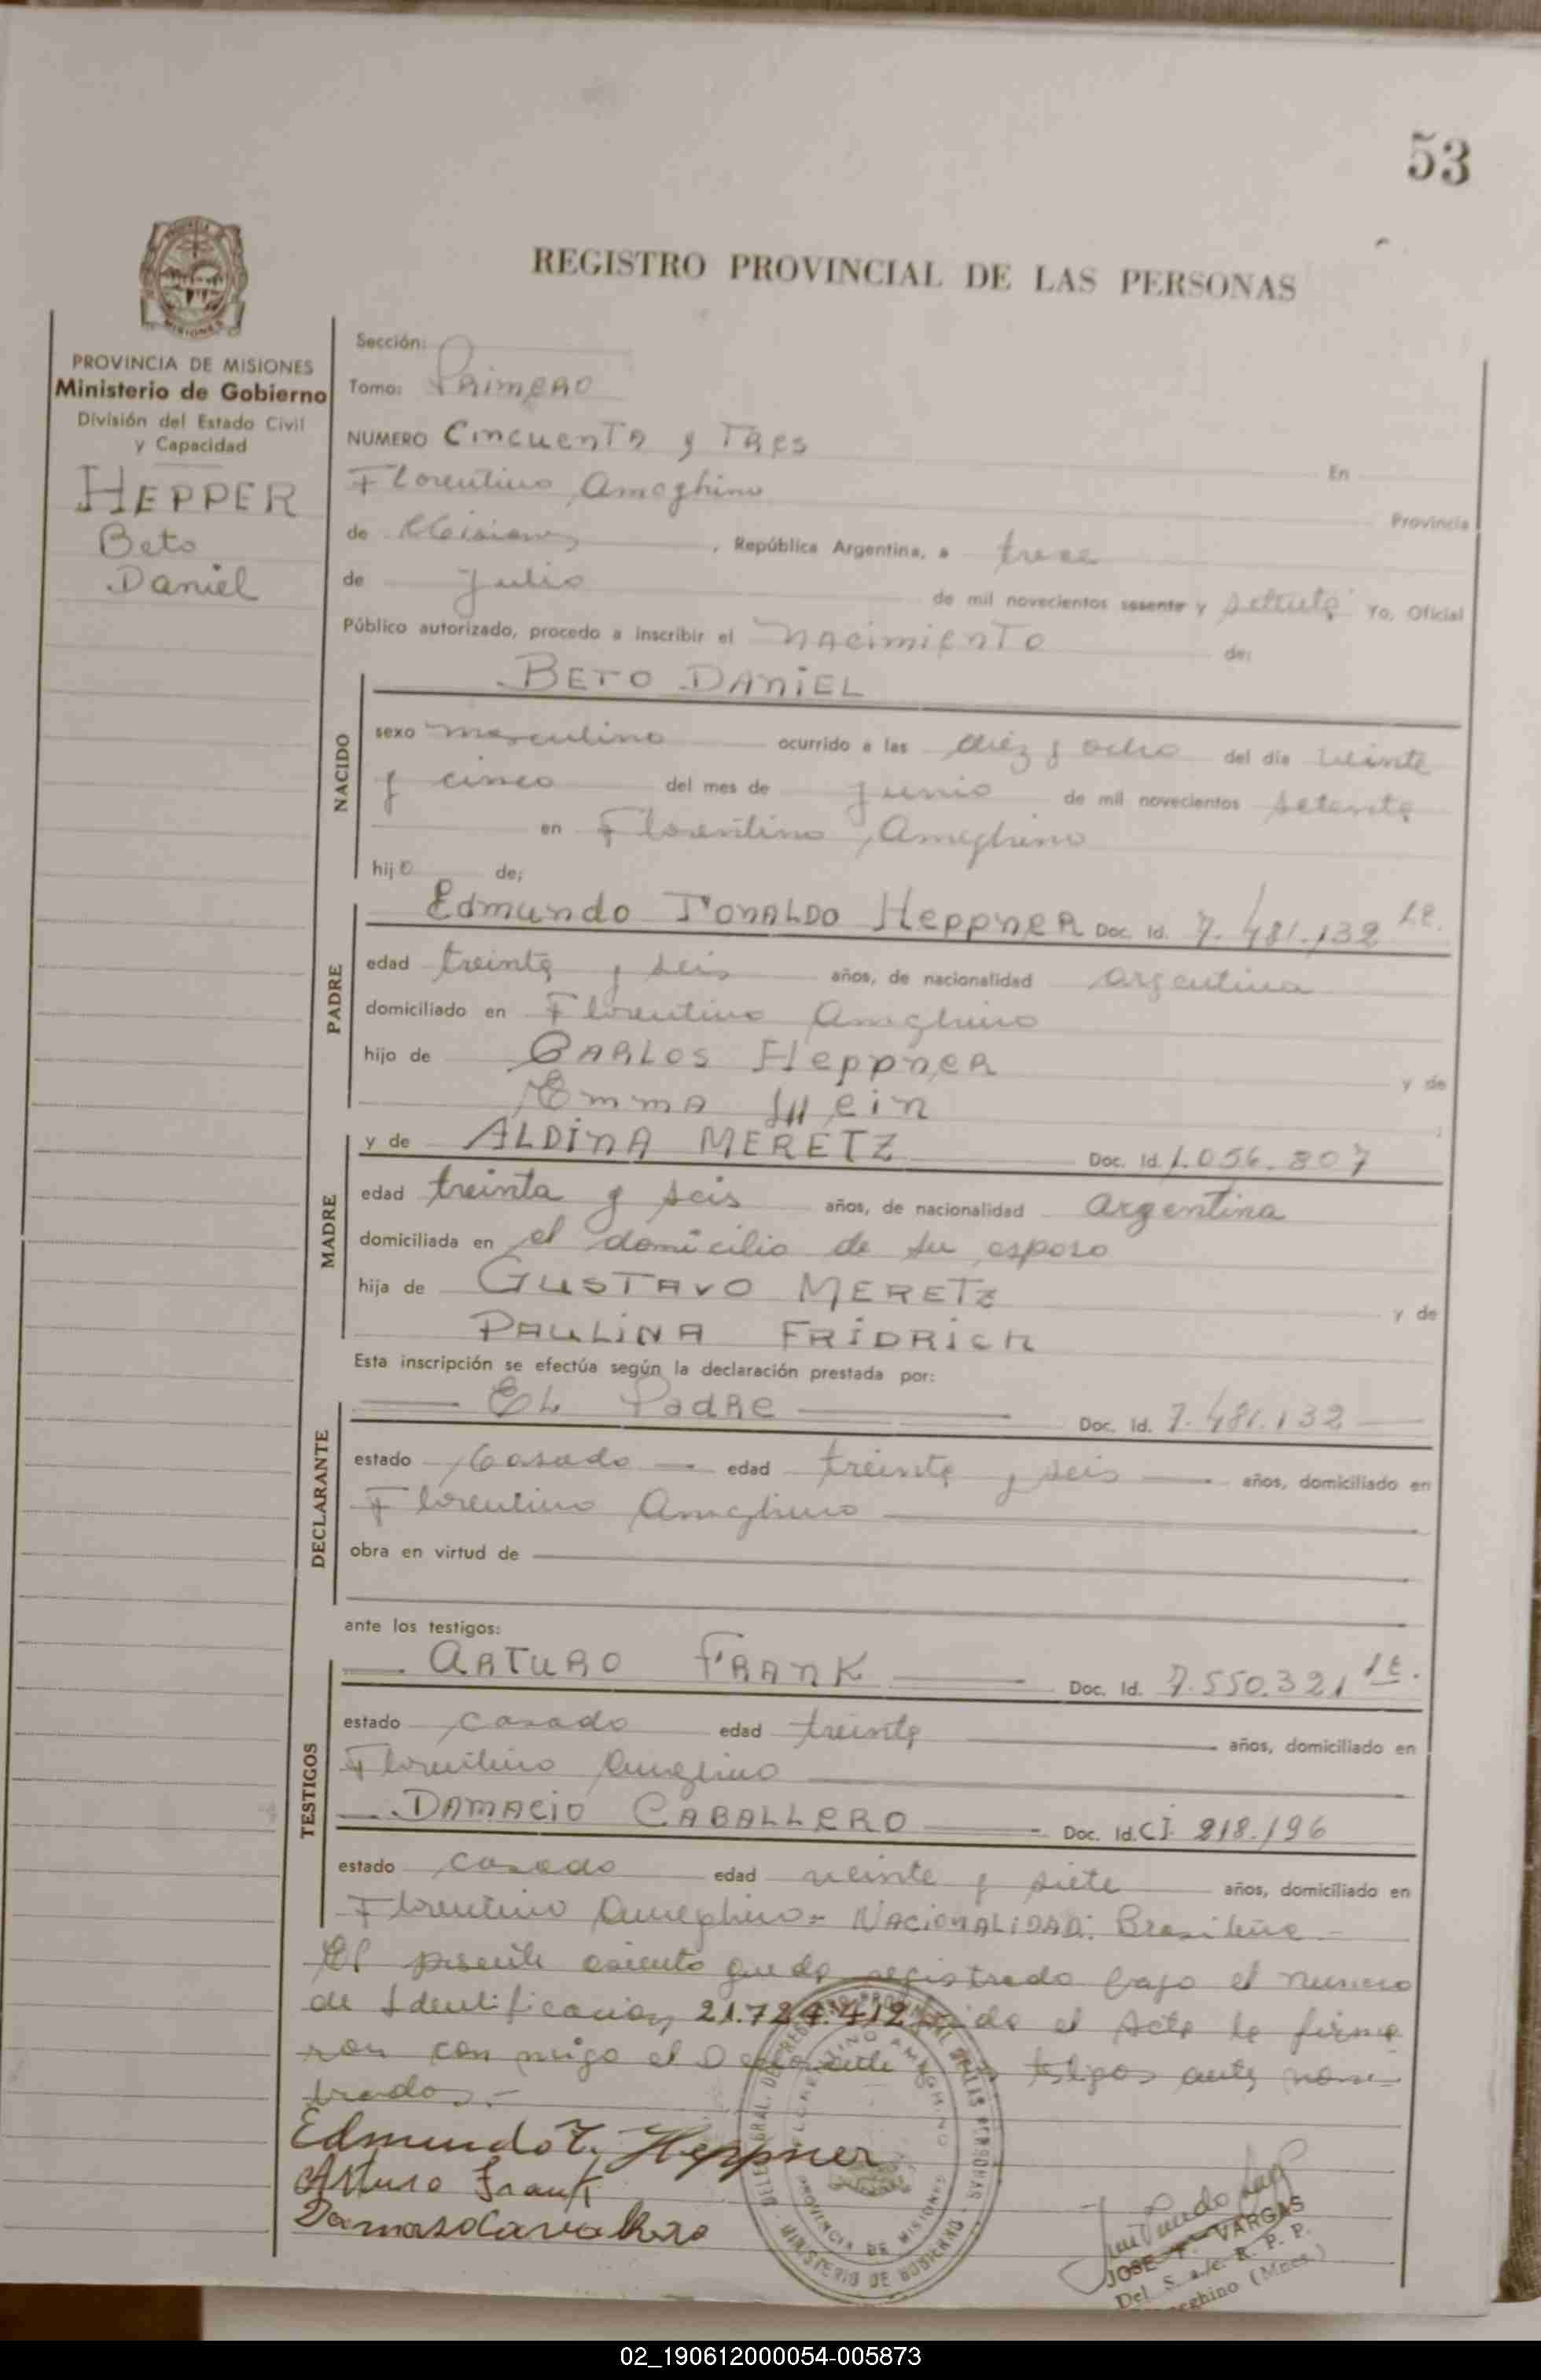 53
REGISTRO PROVINCIAL DE LAS PERSONAS
PROVINCIA DE MISIONES
Ministerio de Gobierno
División del Estado Civil
y Capacidad
HEPPER
Beto
Daniel
Sección:
Tomo: Primero
NUMERO Cincuenta y Tres En
Florentino Ameghino Provincia
de Misiones, República Argentina, a trece
de Julio de mil novecientos sesenta y setenta Yo, Oficial
Público autorizado, procedo a inscribir el nacimiento de:
BETO DANIEL
NACIDO
sexo masculino ocurrido a las diez y ocho del día veinte
y cinco del mes de junio de mil novecientos setenta
en Florentino Ameghino
hijo de;
PADRE
Edmundo Tonaldo Heppner Doc. Id. 7.481.132 L.E.
edad treinta y seis años, de nacionalidad argentina
domiciliado en Florentino Ameghino
hijo de Carlos Heppner y de
Emma Wein
MADRE
y de ALDINA MERETZ Doc. Id. 1.056.807
edad treinta y seis años, de nacionalidad argentina
domiciliada en el domicilio de su esposo
hija de GUSTAVO MERETZ y de
PAULINA FRIDRICH
Esta inscripción se efectúa según la declaración prestada por:
DECLARANTE
EL Padre Doc. Id. 7.481.132
estado Casado edad treinta y seis años, domiciliado en
Florentino Ameghino
obra en virtud de
ante los testigos:
TESTIGOS
ARTURO FRANK Doc. Id. 7.550.321 L.E.
estado casado edad treinta años, domiciliado en
Florentino Ameghino
DAMACIO CABALLERO Doc. Id. CI. 818.196
estado casado edad veinte y siete años, domiciliado en
Florentino Ameghino= NACIONALIDAD: Brasileña
El presente asiento queda registrado bajo el numero
de Identificacion 21.724.412 el Acta la firma
ron con migo el Declarante testigos antes nom
brados.-
Edmundo T. Heppner
Arturo Frank
DELEG. GRAL. DEL REGISTRO PROVINCIAL DE LAS PERSONAS
FLORENTINO AMEGHINO
PROVINCIA DE MISIONES
MINISTERIO DE GOBIERNO
JOSE F. VARGAS
Del. S. a/c. R. P. P.
Ameghino (Mnes.)
02_190612000054-005873